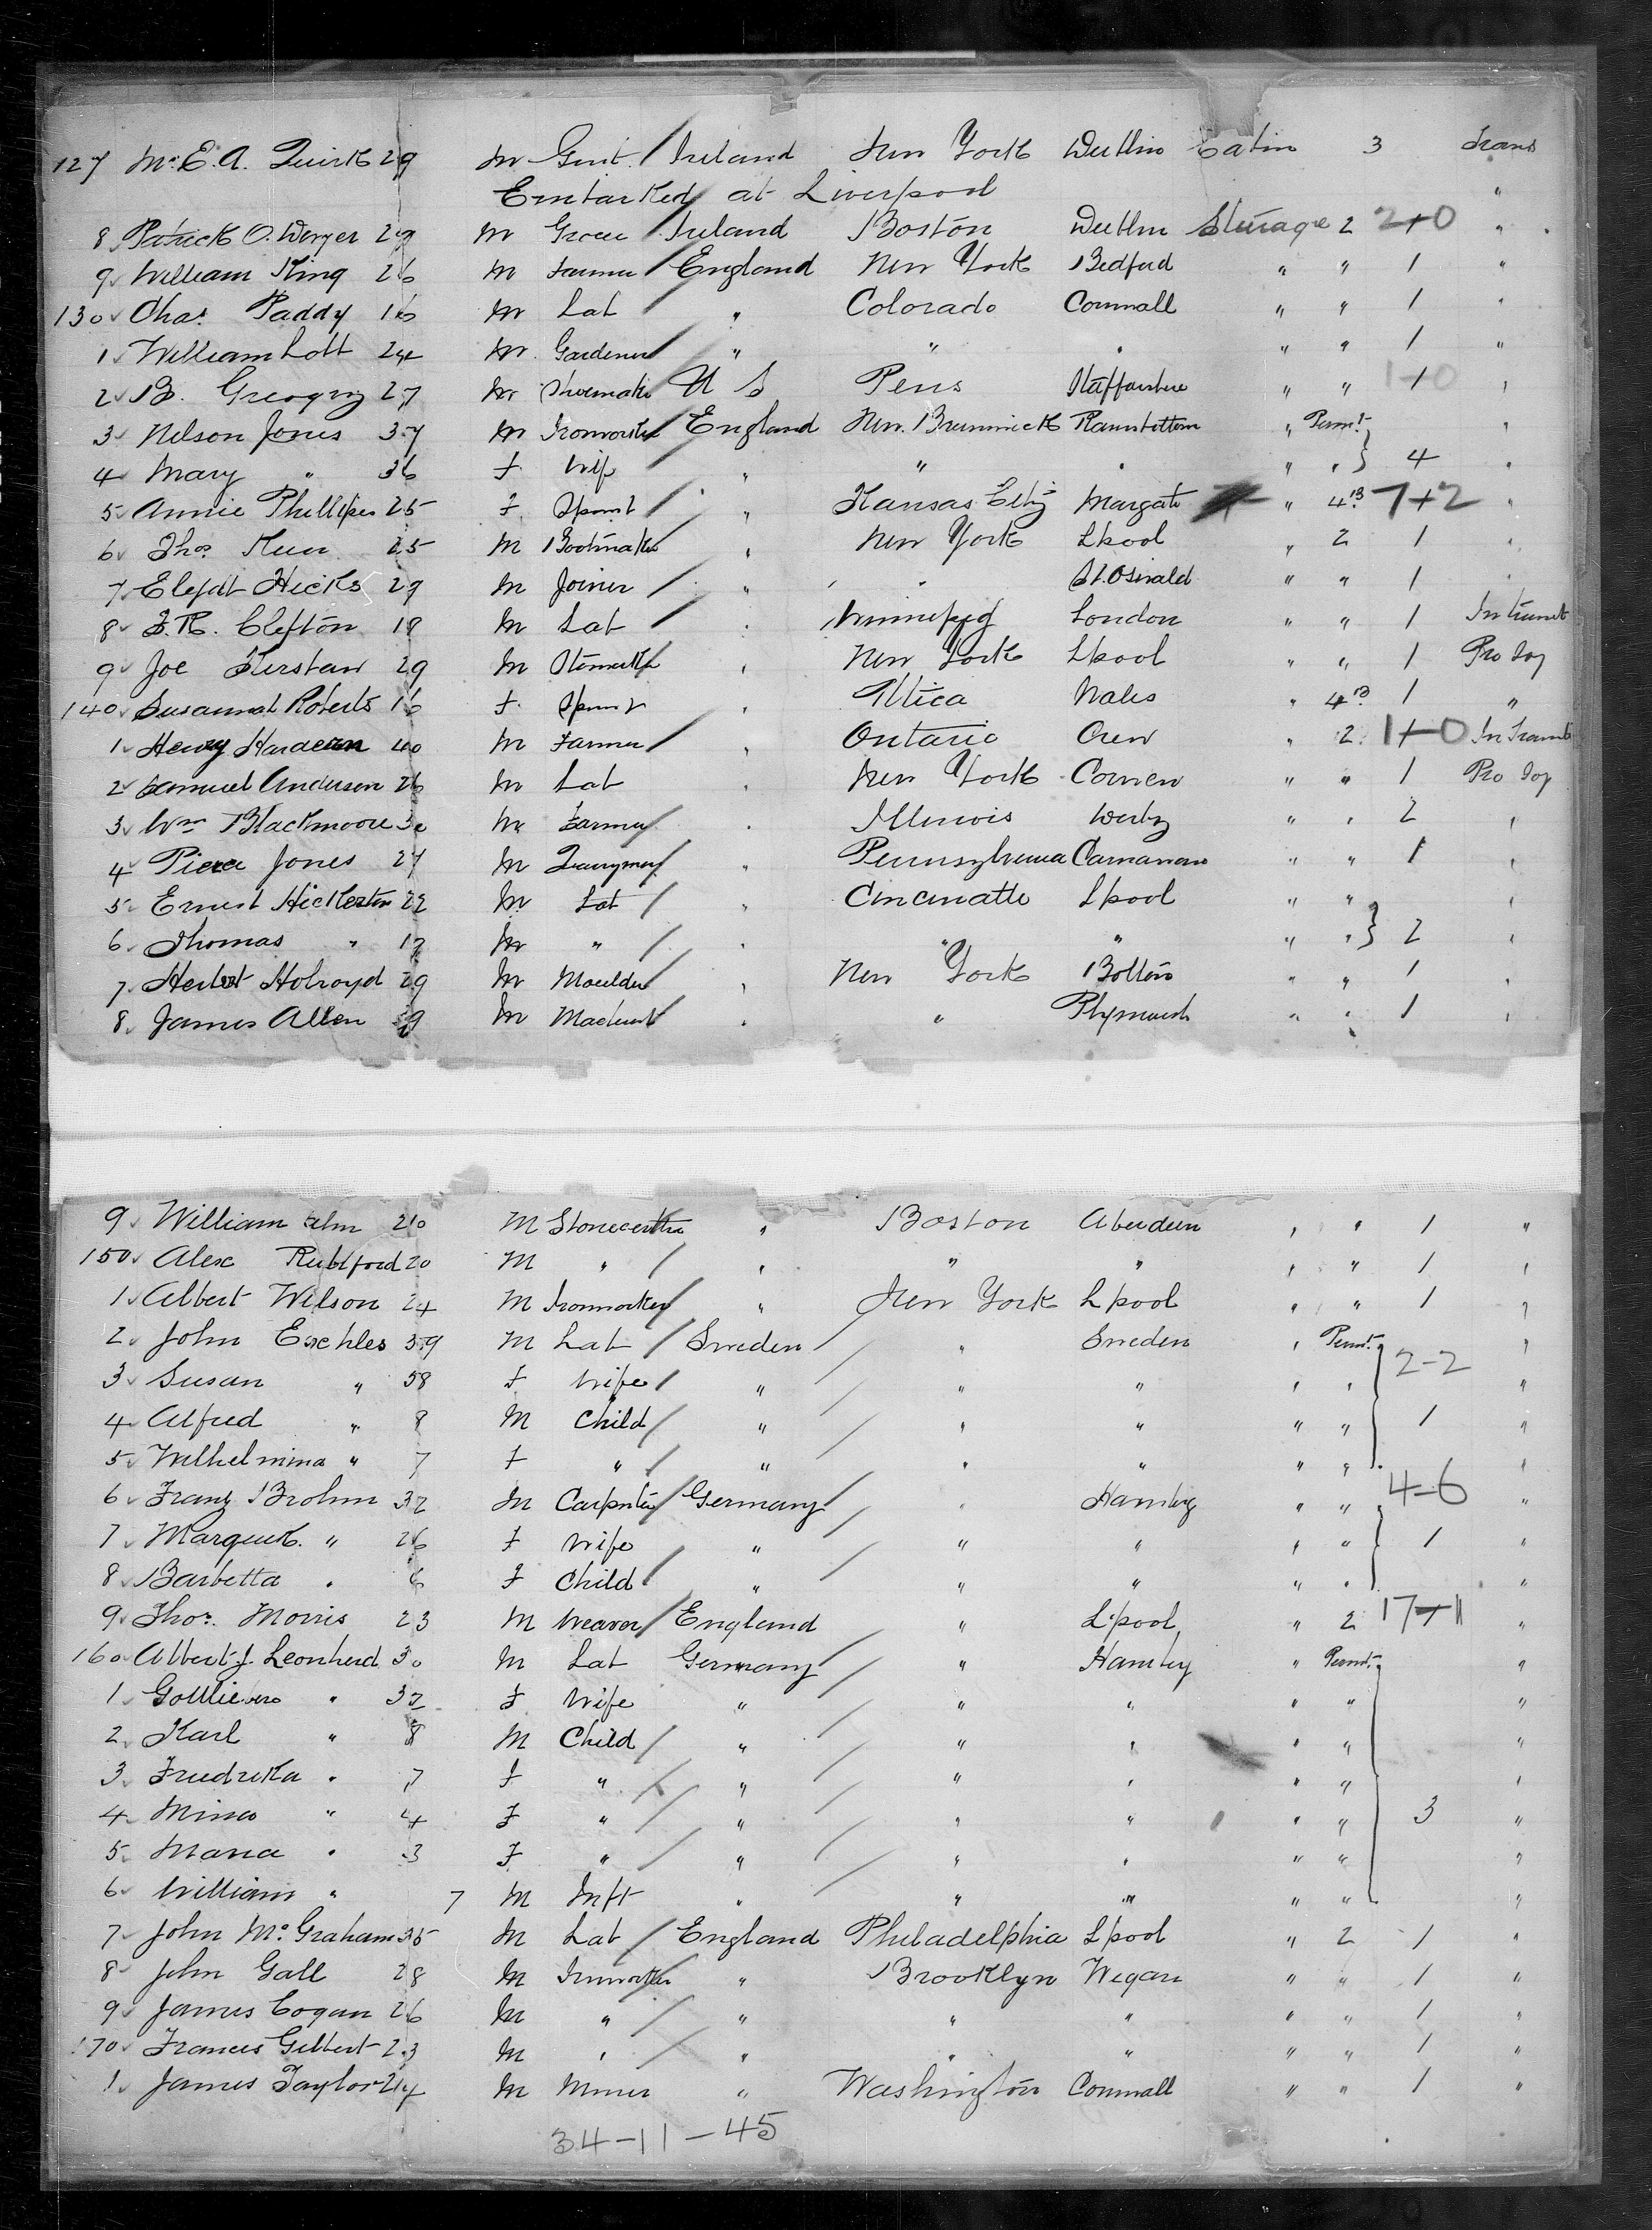 127 Mr. E. A. Quirk 29 M Gent. Ireland New York Dublin Cabin 3 Trans
Embarked at Liverpool "
8 Patrick O. Dwyer 29 M Grocer Ireland Boston Dublin Steerage 2 2+0 "
9 William King 26 M Farmer England New York Bedford " " 1 "
130 Chas. Paddy 16 M Lab " Colorado Cornwall " " 1 "
1 William Lott 24 M Gardener " " " " " 1 "
2 B. Greogry 27 M Shoemaker U S Pens Staffordshire " " 1+0 "
3 Nelson Jones 37 M Ironworker England New. Brunswick Ramsbottom " Permt. "
4 Mary " 36 F Wife " " " " " } 4 "
5 Annie Phillips 25 F Spinst " Kansas City Margate " 4B 7+2 "
6 Thos. 25 M Bootmaker " New York Lpool " 2 1 "
7 Hicks 29 M Joiner " " St. Oswald " " 1 "
8 F. R. Clefton 18 M Lab " Winnipeg London " " 1 In transit
9 Joe 29 M " New York Lpool " " 1 Pro Soj
140 Susannah Roberts 16 F Spinst " Utica Wales " 4B 1 "
1 Henry Hardern 40 M Farmer " Ontario Crew " 2 1+0 In Transit
2 Samuel Anderson 26 M Lab " New York " " 1 Pro Soj
3 Wm Blackmoore 30 M Farmer " Illinois Derby " " 2 "
4 Pierce Jones 27 M " Pennsylvania Carnarvon " " 1 "
5 Ernest Hickleston 22 M Lab " Cincinatti Lpool " " "
6 Thomas " 17 M " " " " " " } 2 "
7 Herbert Holroyd 29 M Moulder " New York Bolton " " 1 "
8 James Allen 39 M Machinist " " Plymouth " " 1 "
9 William 20 M Stonecutter " Boston Aberdeen " " 1 "
150 Alex Rutlford 20 M " " " " " " 1 "
1 Albert Wilson 24 M Ironworker " New York Lpool " " 1 "
2 John Eachles 39 M Lab Sweden " Sweden " Permt. "
3 Susan " 38 F Wife " " " " " 2-2 "
4 Alfred " 8 M Child " " " " " 1 "
5 Wilhelmina " 7 F " " " " " " "
6 Franz Brohm 32 M Carpenter Germany " Hamburg " " 4-6 "
7 " 26 F Wife " " " " " 1 "
8 Barbetta " 6 F Child " " " " " "
9 Thos. Morris 23 M Weaver England " L'pool " 2 17+11 "
160 Albert J. Leonherd 30 M Lab Germany " Hamburg " Permt. "
1 " 32 F Wife " " " " " "
2 Karl " 8 M Child " " " " " "
3 Fredrika " 7 F " " " " " " "
4 Mina " 4 F " " " " " " 3 "
5 Maria " 3 F " " " " " " "
6 William " 7 M Inft " " " " " "
7 John Mc. Graham 35 M Lab England Philadelphia Lpool " 2 1 "
8 John Gall 28 M Ironworker " Brooklyn Wigan " " 1 "
9 James Cogan 26 M " " " " " " 1 "
170 Frances Gilbert 23 M " " " " " " 1 "
1 James Taylor 24 M Miner " Washington Cornwall " " 1 "
34-11-45